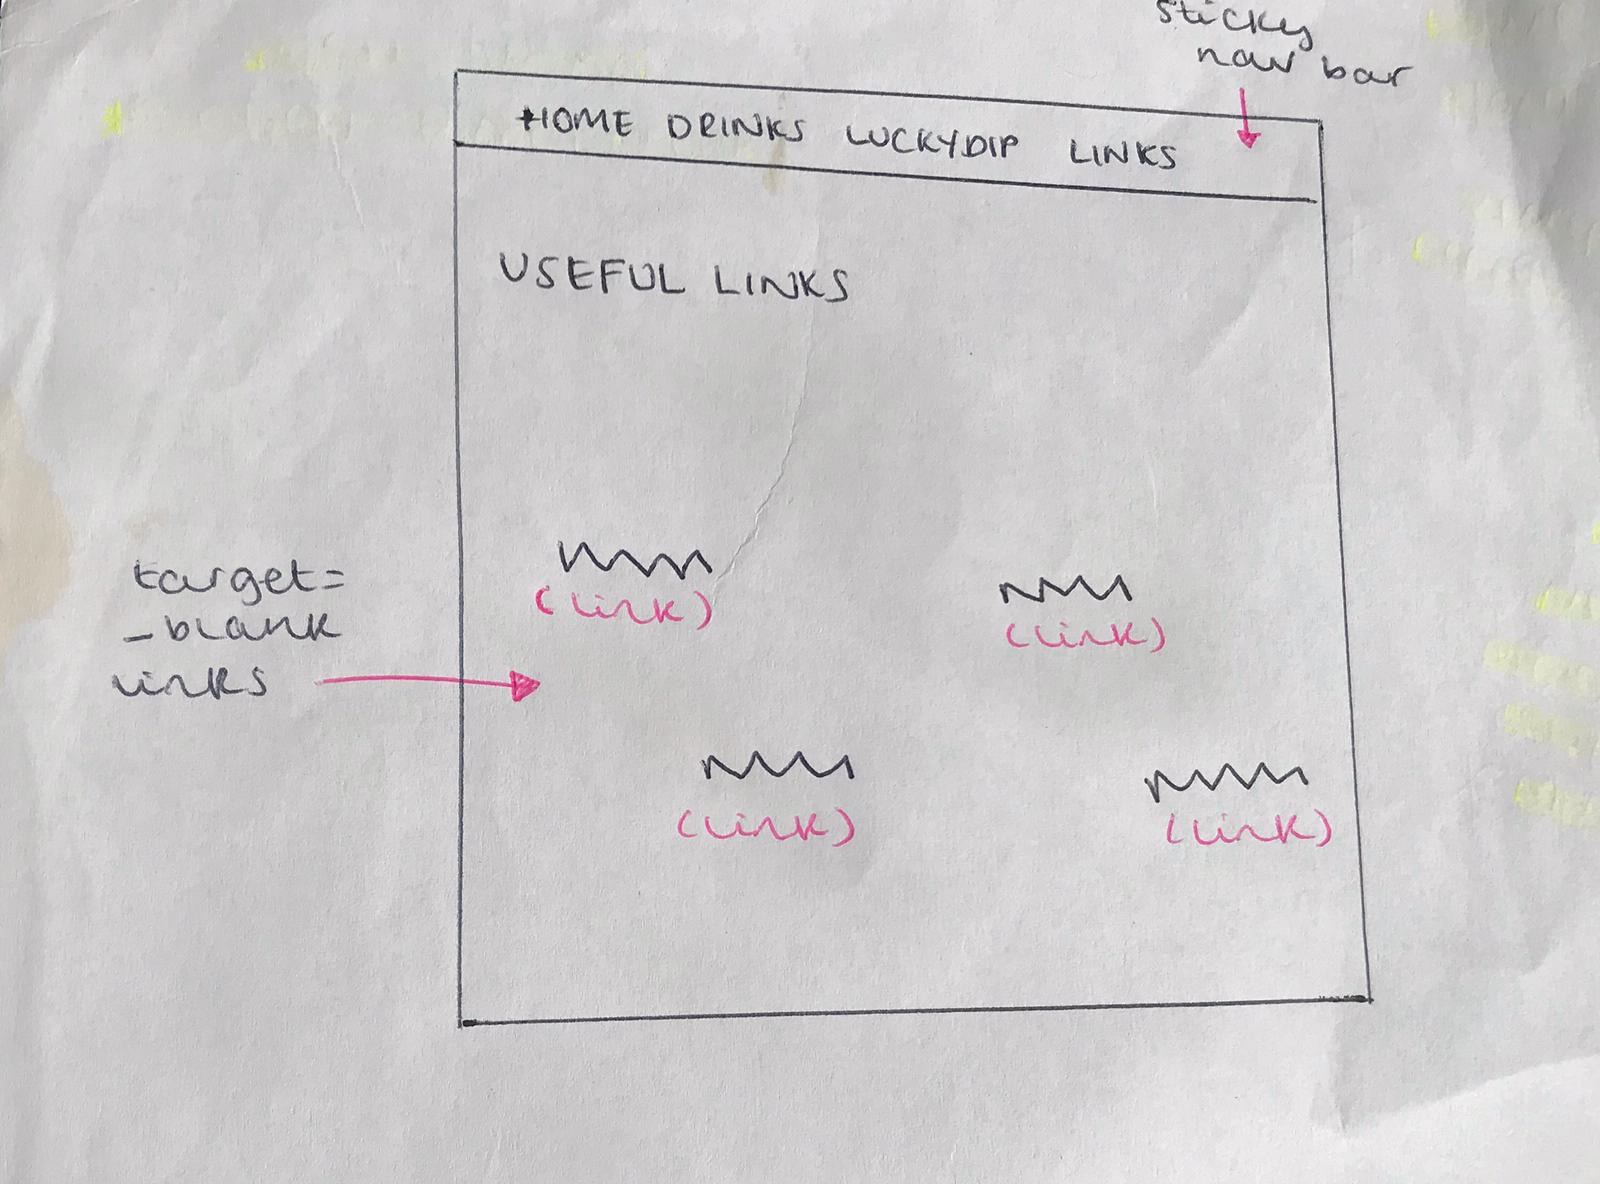 sticky
nav bar
HOME DRINKS LUCKYDIP LINKS
USEFUL LINKS
target=
_blank
links
(link)
(link)
(link)
(link)